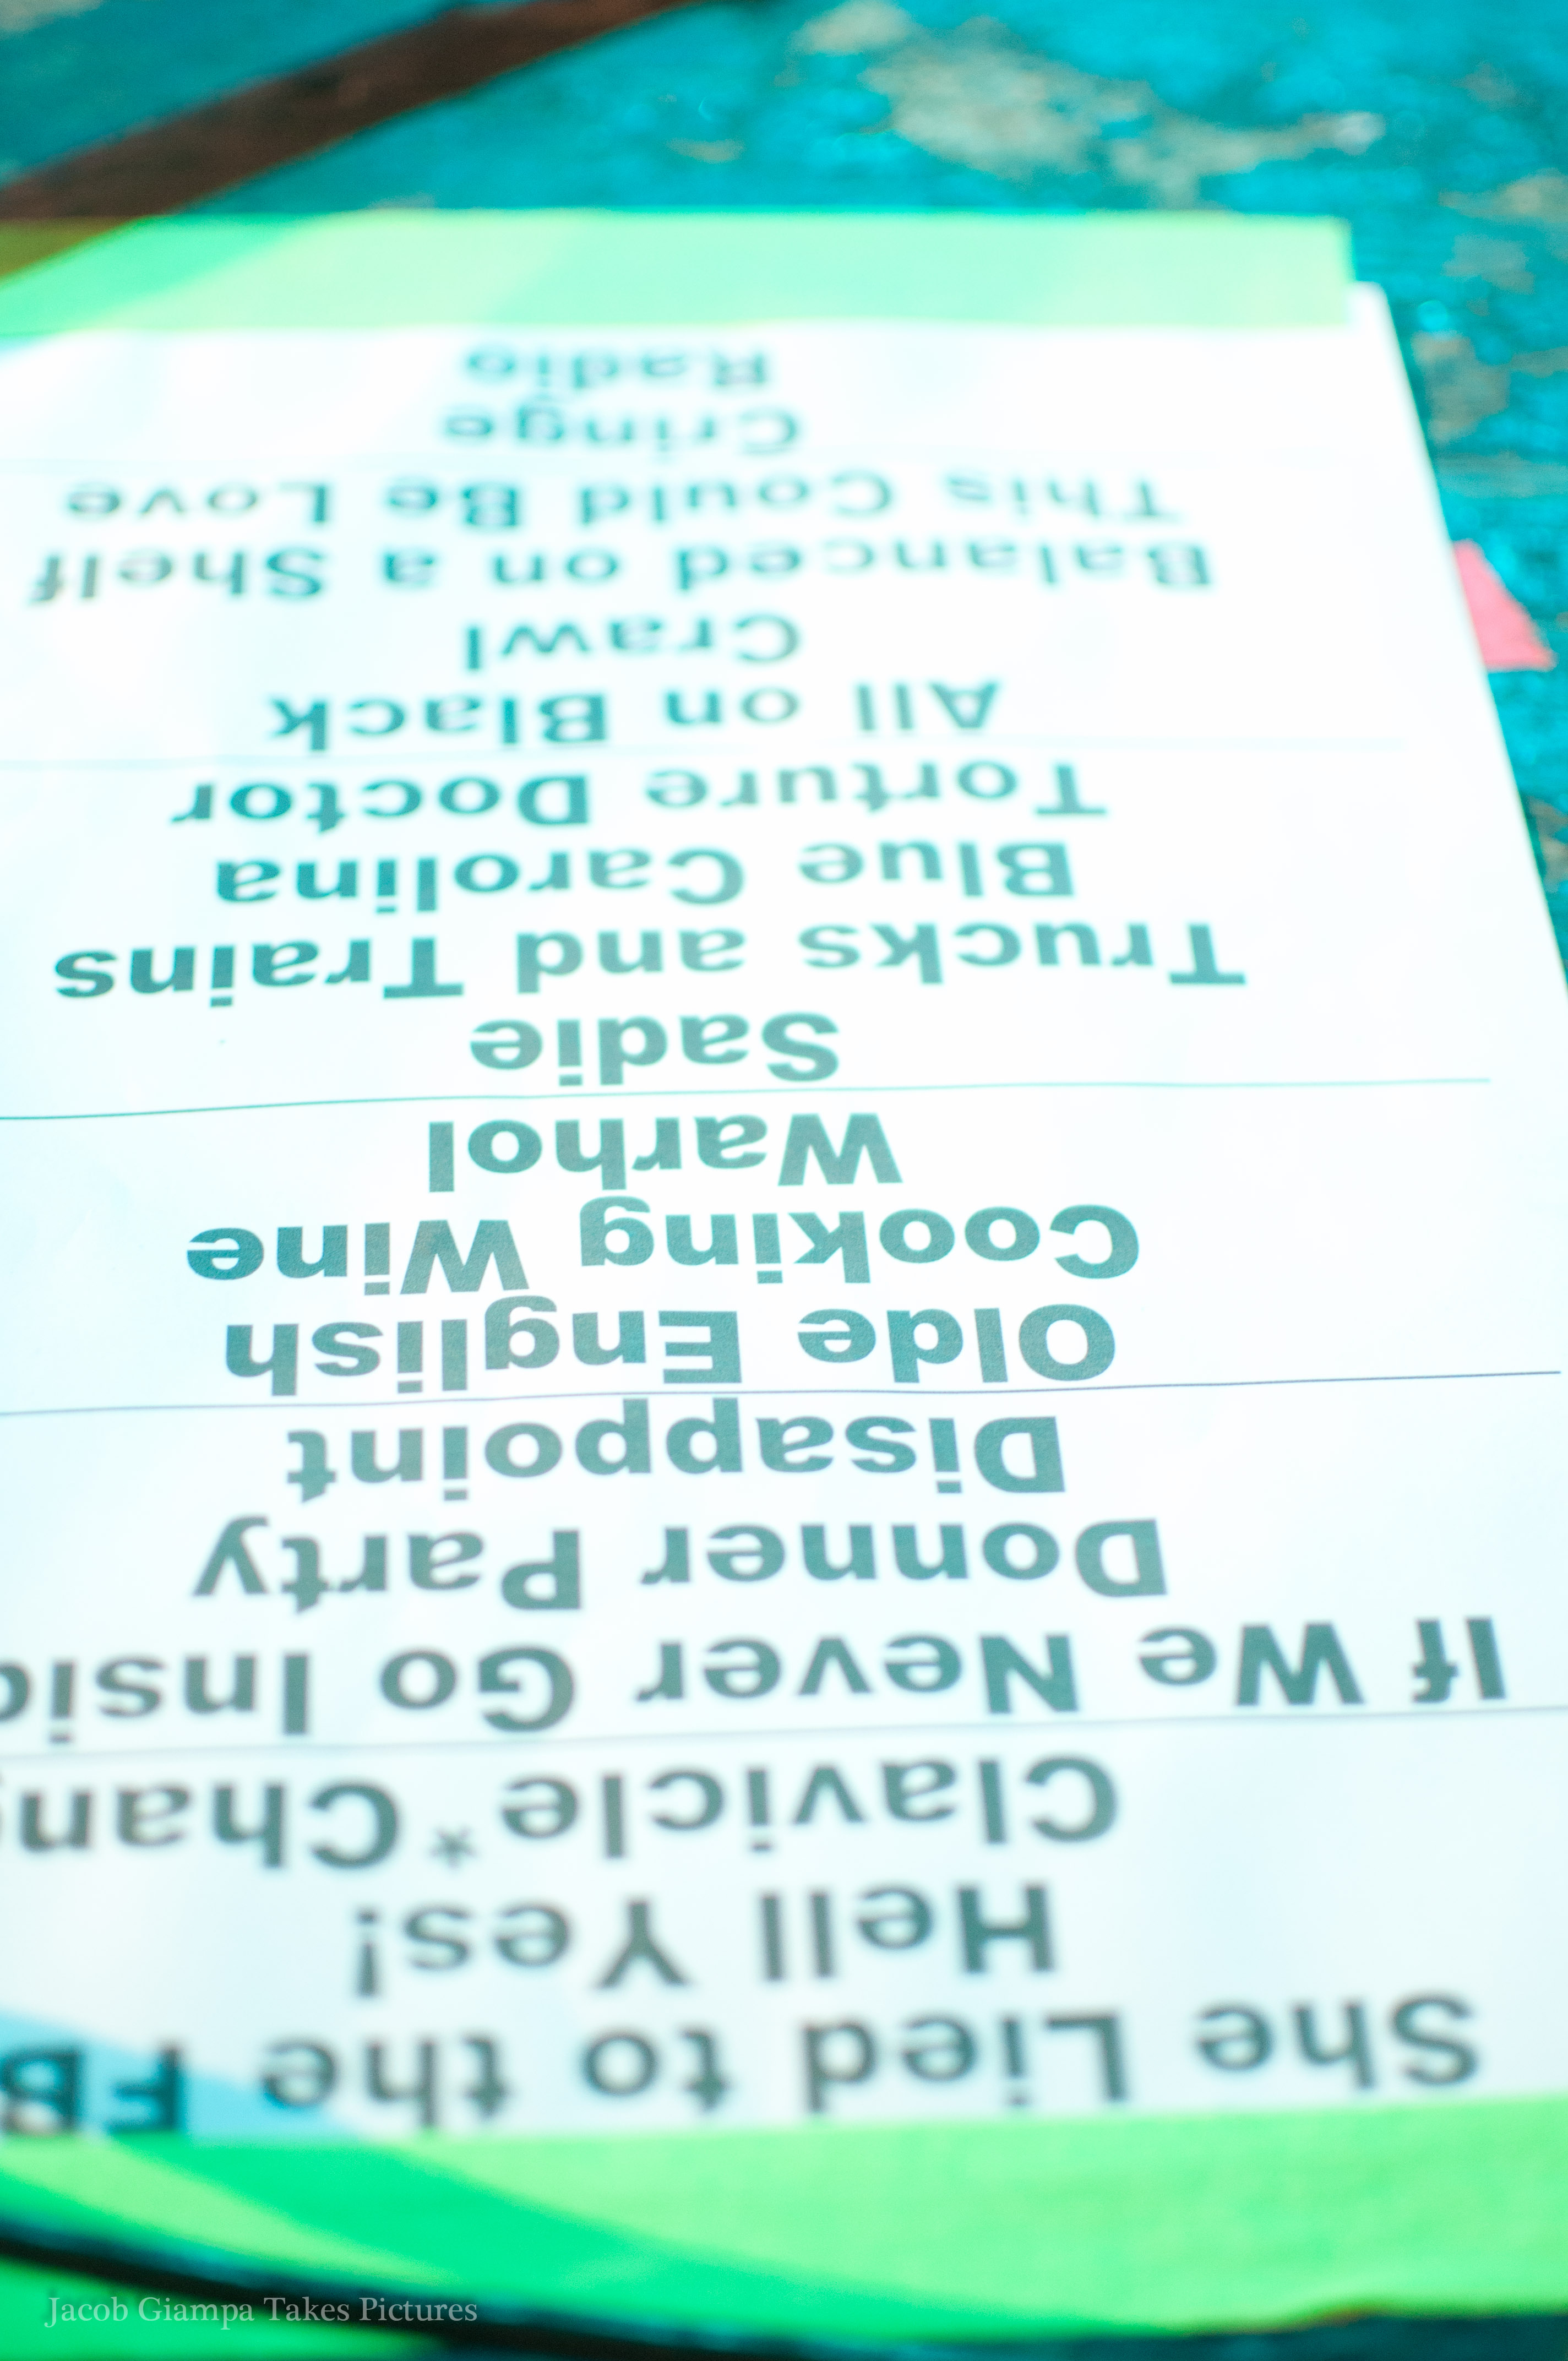 She Lied to the FB
Hell Yes!
Clavicle *Chang
If We Never Go Insid
Donner Party
Disappoint
Olde English
Cooking Wine
Warhol
Sadie
Trucks and Trains
Blue Carolina
Torture Doctor
All on Black
Crawl
Balanced on a Shelf
This Could Be Love
Cringe
Radio
Jacob Giampa Takes Pictures